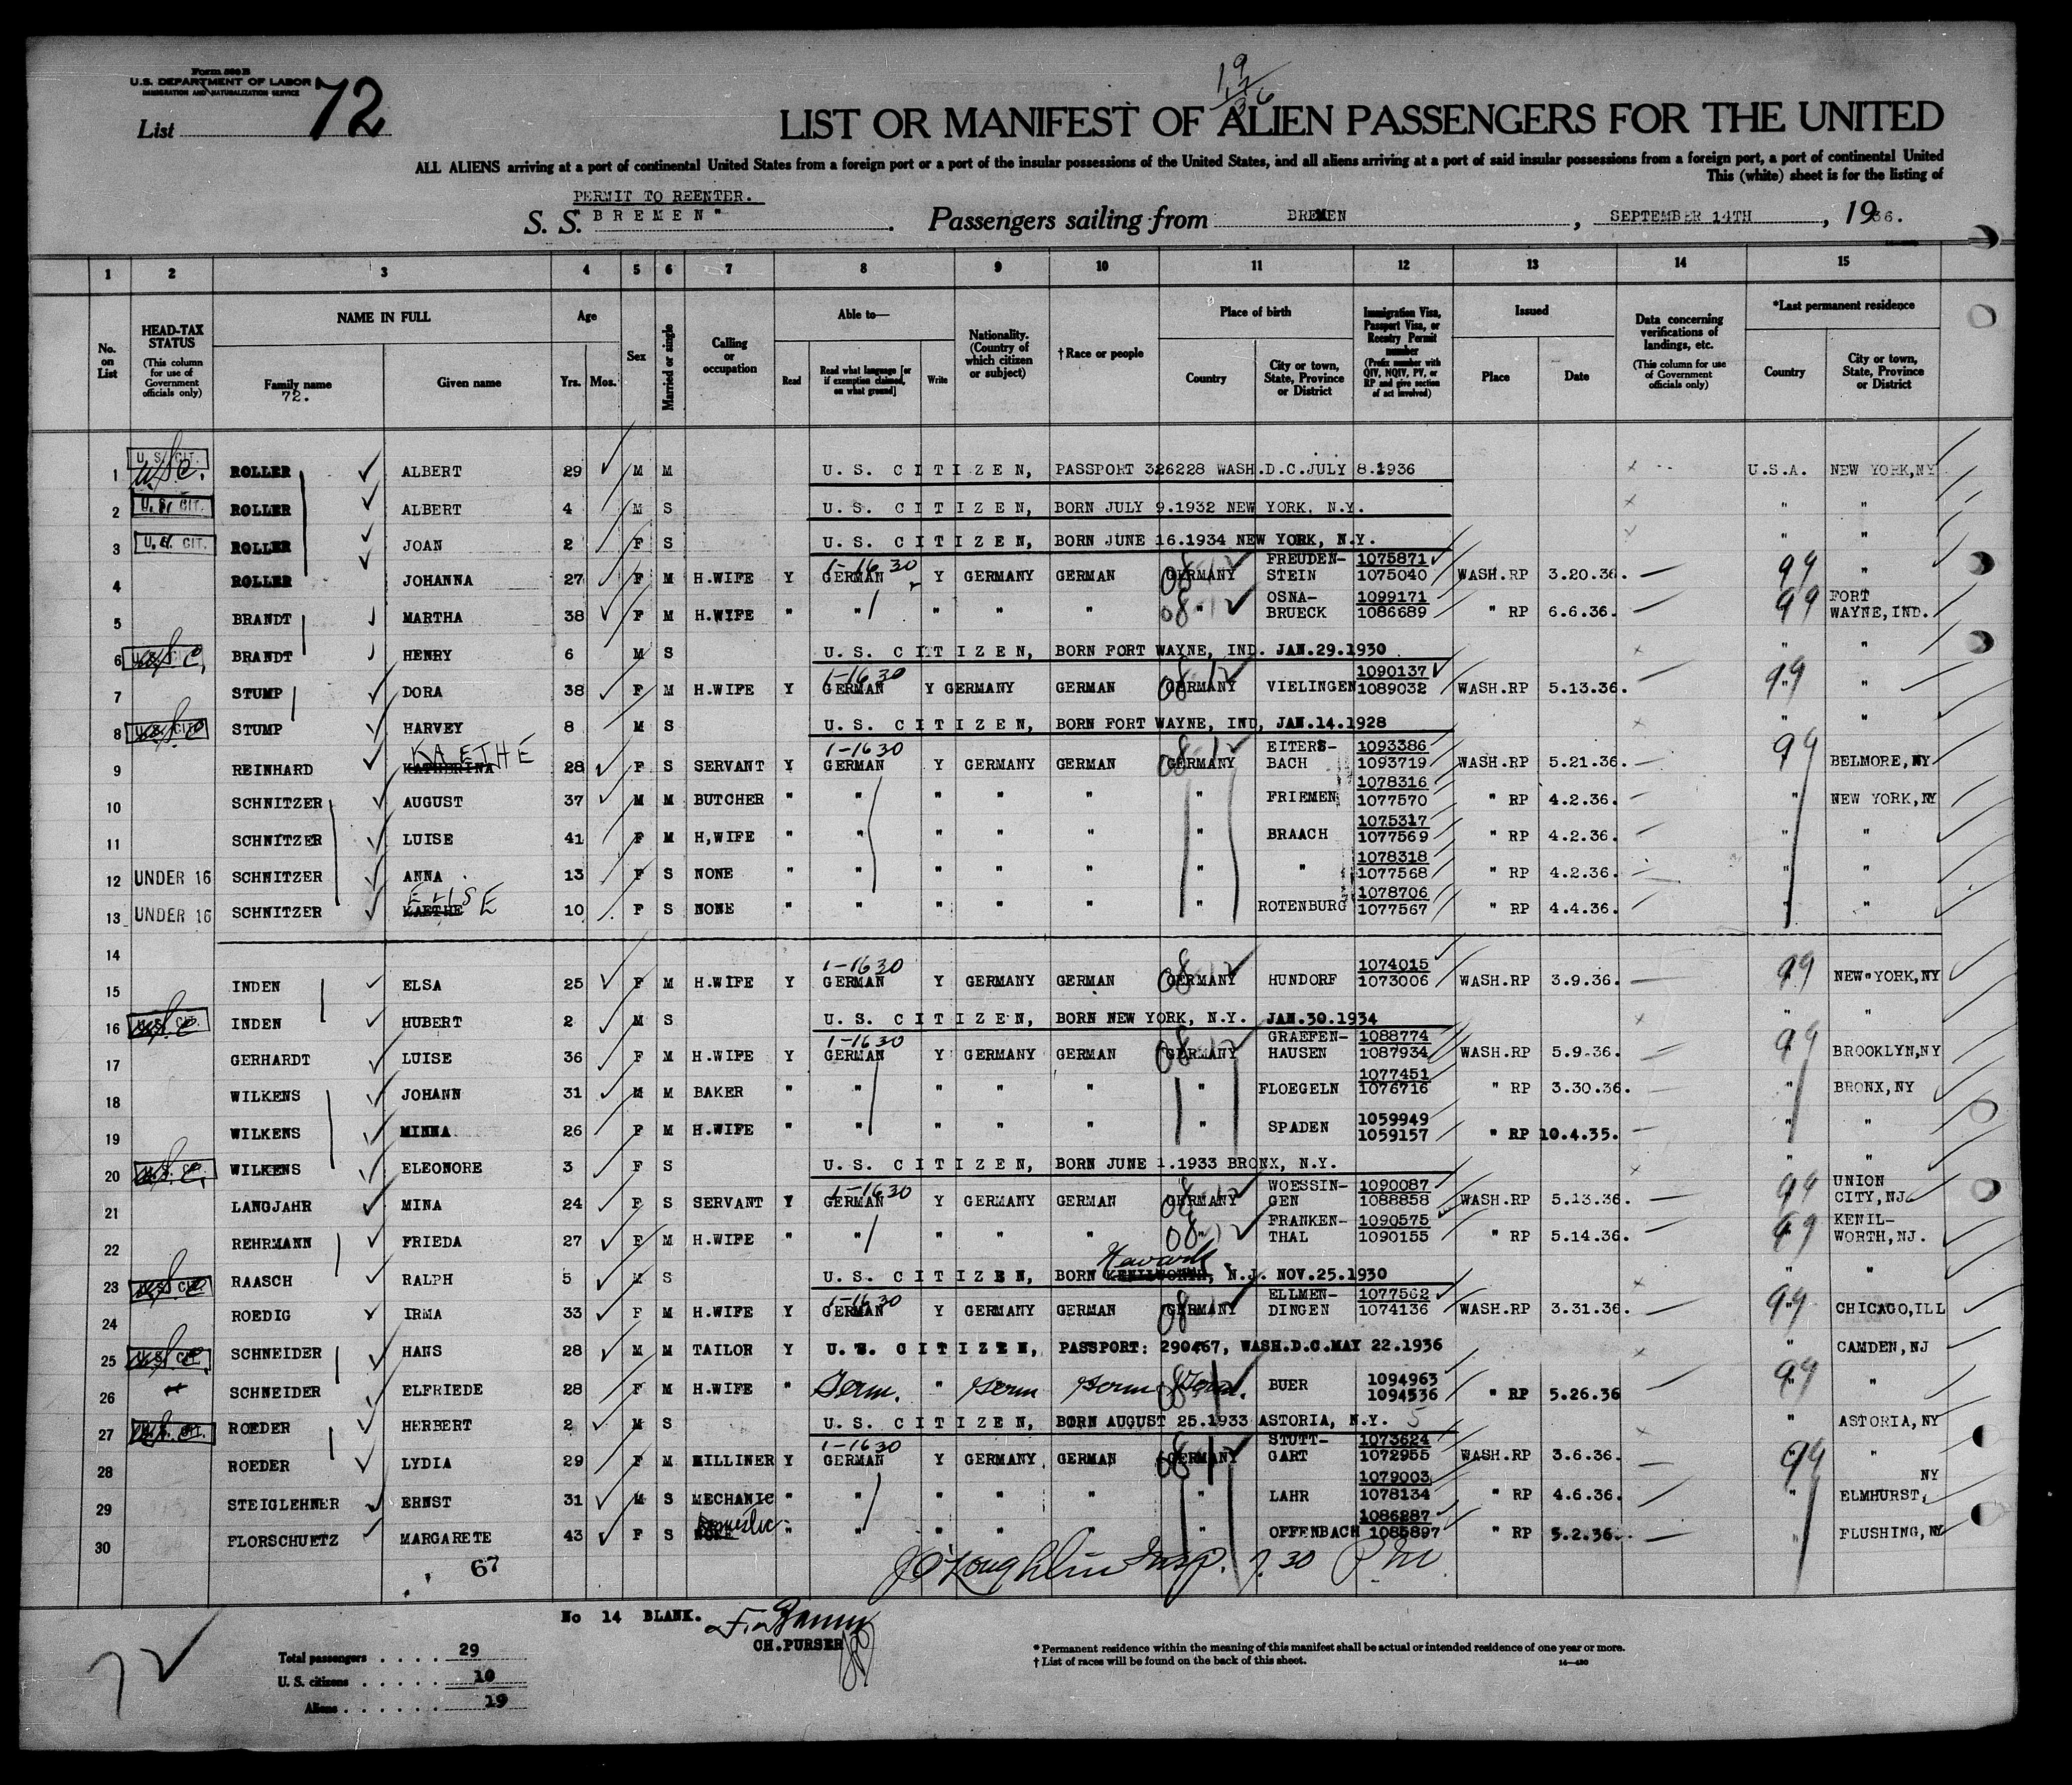 Form 500 B
U.S. DEPARTMENT OF LABOR
IMMIGRATION AND NATURALIZATION SERVICE
List 72
LIST OR MANIFEST OF ALIEN PASSENGERS FOR THE UNITED
ALL ALIENS arriving at a port of continental United States from a foreign port or a port of the insular possessions of the United States, and all aliens arriving at a port of said insular possessions from a foreign port, a port of continental United
This (white) sheet is for the listing of
PERMIT TO REENTER.
S. S. "BREMEN". Passengers sailing from BREMEN, SEPTEMBER 14TH, 1936.
1 2 3 4 5 6 7 8 9 10 11 12 13 14 15
No. on List
HEAD-TAX STATUS (This column for use of Government officials only)
NAME IN FULL Family name 72. Given name
Age Yrs. Mos.
Sex
Married or single
Calling or occupation
Able to— Read Read what language [or if exemption claimed, on what ground] Write
Nationality. (Country of which citizen or subject)
†Race or people
Place of birth Country City or town, State, Province or District
Immigration Visa, Passport Visa, or Reentry Permit number (Prefix number with QIV, NQIV, PV, or RP and give section of act involved)
Issued Place Date
Data concerning verifications of landings, etc. (This column for use of Government officials only)
*Last permanent residence Country City or town, State, Province or District
1 U.S. CIT. U.S.C. ROLLER ALBERT 29 M M U.S. CITIZEN, PASSPORT 326228 WASH.D.C.JULY 8.1936 U.S.A. NEW YORK,NY
2 U.S. CIT. ROLLER ALBERT 4 M S U.S. CITIZEN, BORN JULY 9.1932 NEW YORK, N.Y. " "
3 U.S. CIT. ROLLER JOAN 2 F S U.S. CITIZEN, BORN JUNE 16.1934 NEW YORK, N.Y. " "
4 ROLLER JOHANNA 27 F M H.WIFE Y 1-1630 GERMAN Y GERMANY GERMAN GERMANY FREUDEN-STEIN 1075871 1075040 WASH.RP 3.20.36. 99 "
5 BRANDT MARTHA 38 F M H.WIFE " " " " " " OSNA-BRUECK 1099171 1086689 " RP 6.6.36. 99 FORT WAYNE,IND.
6 U.S.C. BRANDT HENRY 6 M S U.S. CITIZEN, BORN FORT WAYNE, IND. JAN.29.1930 " "
7 STUMP DORA 38 F M H.WIFE Y 1-1630 GERMAN Y GERMANY GERMAN GERMANY VIELINGEN 1090137 1089032 WASH.RP 5.13.36. 99 "
8 U.S. CIT. STUMP HARVEY 8 M S U.S. CITIZEN, BORN FORT WAYNE, IND, JAN.14.1928 " "
9 REINHARD KATHERINA KAETHE 28 F S SERVANT Y 1-1630 GERMAN Y GERMANY GERMAN GERMANY EITERS-BACH 1093386 1093719 WASH.RP 5.21.36. 99 BELMORE, NY
10 SCHNITZER AUGUST 37 M M BUTCHER " " " " " " FRIEMEN 1078316 1077570 " RP 4.2.36. " NEW YORK,NY
11 SCHNITZER LUISE 41 F M H,WIFE " " " " " " BRAACH 1075317 1077569 " RP 4.2.36. " "
12 UNDER 16 SCHNITZER ANNA 13 F S NONE " " " " " " " 1078318 1077568 " RP 4.2.36. " "
13 UNDER 16 SCHNITZER KAETHE ELLSE 10 F S NONE " " " " " " ROTENBURG 1078706 1077567 " RP 4.4.36. " "
14
15 INDEN ELSA 25 F M H.WIFE Y 1-1630 GERMAN Y GERMANY GERMAN GERMANY HUNDORF 1074015 1073006 WASH.RP 3.9.36. 99 NEW YORK,NY
16 U.S. CIT. INDEN HUBERT 2 M S U.S. CITIZEN, BORN NEW YORK, N.Y. JAN.30.1934 " "
17 GERHARDT LUISE 36 F M H.WIFE Y 1-1630 GERMAN Y GERMANY GERMAN GERMANY GRAEFEN-HAUSEN 1088774 1087934 WASH.RP 5.9.36. 99 BROOKLYN,NY
18 WILKENS JOHANN 31 M M BAKER " " " " " " FLOEGELN 1077451 1076716 " RP 3.30.36. " BRONX,NY
19 WILKENS MINNA 26 F M H.WIFE " " " " " " SPADEN 1059949 1059157 " RP 10.4.35. " "
20 U.S.C. WILKENS ELEONORE 3 F S U.S. CITIZEN, BORN JUNE 1.1933 BRONX, N.Y. " "
21 LANGJAHR MINA 24 F S SERVANT Y 1-1630 GERMAN Y GERMANY GERMAN GERMANY WOESSIN-GEN 1090087 1088858 WASH.RP 5.13.36. 99 UNION CITY,NJ.
22 REHRMANN FRIEDA 27 F M H.WIFE " " " " " " FRANKEN-THAL 1090575 1090155 " RP 5.14.36. 99 KENIL-WORTH,NJ.
23 U.S. CIT. RAASCH RALPH 5 M S U.S. CITIZEN, BORN KENILWORTH, Newark N.J. NOV.25.1930 " "
24 ROEDIG IRMA 33 F M H.WIFE Y 1-1630 GERMAN Y GERMANY GERMAN GERMANY ELLMEN-DINGEN 1077562 1074136 WASH.RP 3.31.36. 99 CHICAGO,ILL
25 U.S. CIT. SCHNEIDER HANS 28 M M TAILOR Y U.S. CITIZEN, PASSPORT: 290467, WASH.D.C.MAY 22.1936 " CAMDEN,NJ
26 SCHNEIDER ELFRIEDE 28 F M H.WIFE " Germ. " Germ Germ Germ. BUER 1094963 1094536 " RP 5.26.36 99 "
27 U.S. CIT. ROEDER HERBERT 2 M S U.S. CITIZEN, BORN AUGUST 25.1933 ASTORIA, N.Y. " ASTORIA,NY
28 ROEDER LYDIA 29 F M MILLINER Y 1-1630 GERMAN Y GERMANY GERMAN GERMANY STUTT-GART 1073624 1072955 WASH.RP 3.6.36. 99 "
29 STEIGLEHNER ERNST 31 M S MECHANIC " " " " " " LAHR 1079003 1078134 " RP 4.6.36. " ELMHURST, NY
30 FLORSCHUETZ MARGARETE 43 F S NONE Domestic " " " " " " OFFENBACH 1086287 1085897 " RP 5.2.36. " FLUSHING,NY
67
J O'Loughlin Insp. 7.30 P.M.
No 14 BLANK.
CH.PURSER
72
Total passengers . . . . 29
U. S. citizens . . . . . 10
Aliens . . . . . . 19
* Permanent residence within the meaning of this manifest shall be actual or intended residence of one year or more.
† List of races will be found on the back of this sheet.